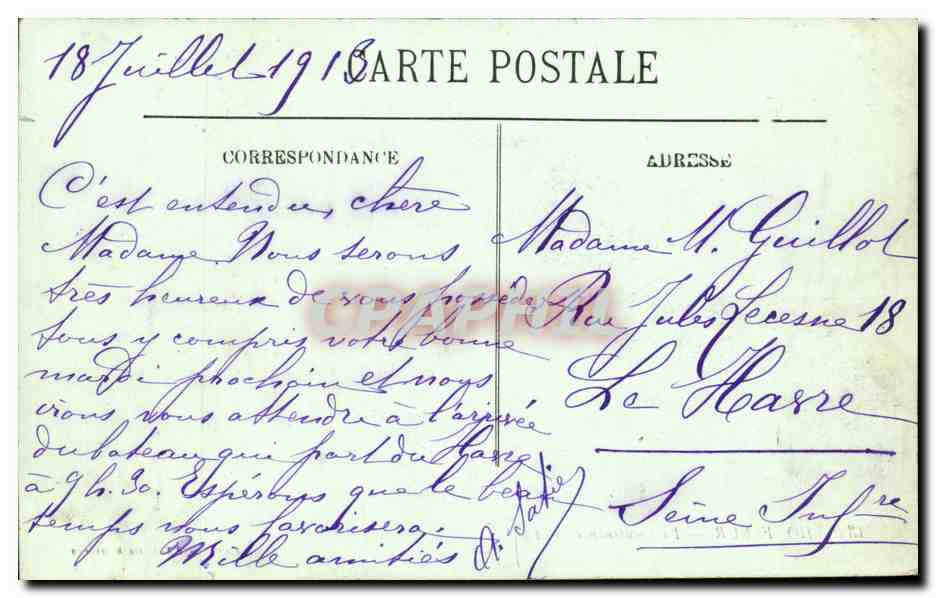 18 Juillet 1913
CARTE POSTALE
CORRESPONDANCE
C'est entendu, chère
Madame. Nous serons
très heureux de vous posséder
tous y compris votre bonne
mardi prochain et nous
irons vous attendre à l'arrivée
du bateau qui part du Havre
à 9h.30. Espérons que le beau
temps nous favorisera.
Mille amitiés
ADRESSE
Madame M. Guillot
Rue Jules Lecesne 18
Le Havre
Seine Infre